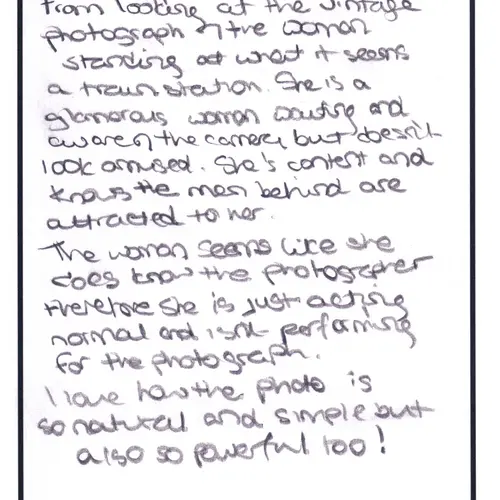 from looking at the vintage
photograph of the woman
standing at what it seems
a train station. She is a
glamorous woman waiting and
aware of the camera, but doesn't
look amused. She's content and
knows the men behind are
attracted to her.
The woman seems like she
does know the photographer
therefore she is just acting
normal and isn't performing
for the photograph.
I love how the photo is
so natural and simple but
also so powerful too!